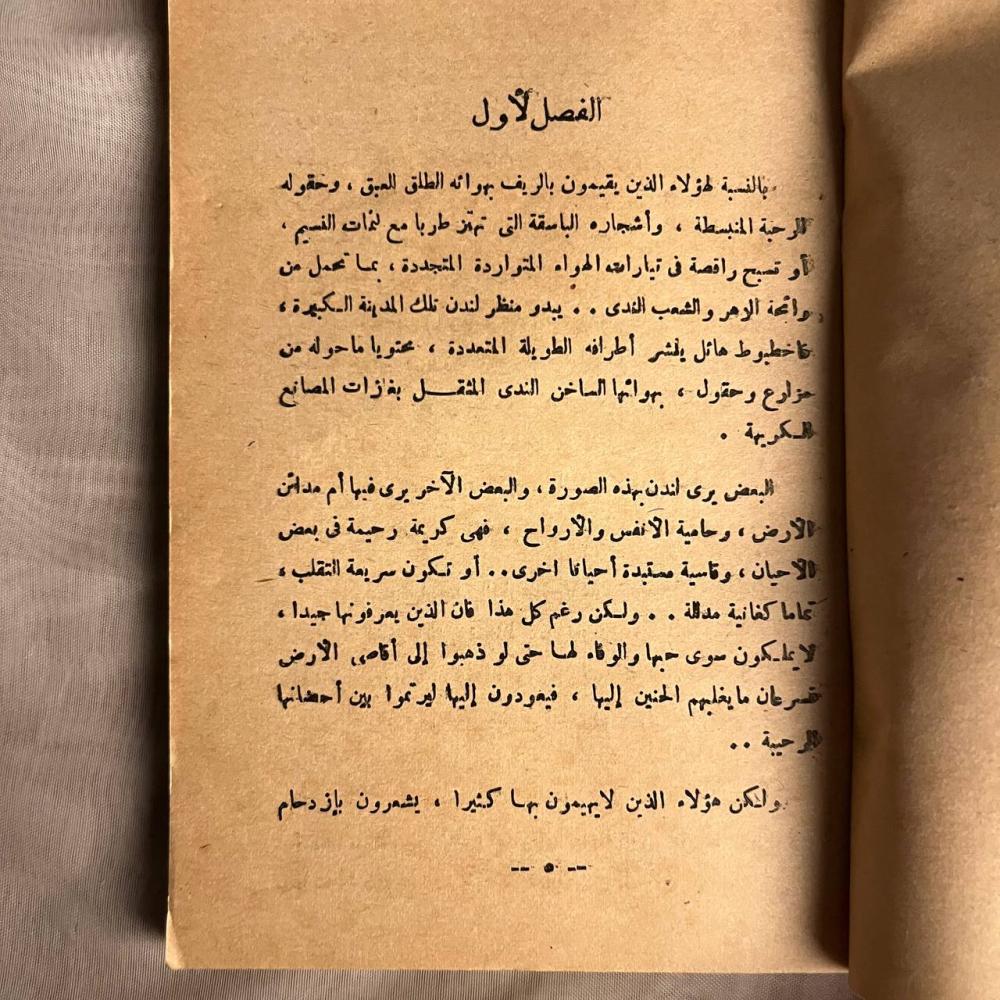 الفصل الأول
بالنسبة لهؤلاء الذين يقيمون بالريف بهوائه الطلق العبق ، وحقوله
الرحبة المنبسطة ، وأشجاره الباسقة التى تهتز طربا مع لثمات النسيم ،
أو تسبح راقصة فى تيارات الهواء المتواردة المتجددة ، بما تحمل من
رائحة الزهر والشعب الندى . . يبدو منظر لندن تلك المدينة الكبيرة ،
كاخطبوط هائل ينشر أطرافه الطويلة المتعددة ، محتويا ماحوله من
مزارع وحقول ، بهوائها الساخن الندى المثقل بغازات المصانع
الكريهة .
البعض يرى لندن بهذه الصورة ، والبعض الآخر يرى فيها أم مدائن
الأرض ، وحامية الأنفس والأرواح ، فهى كريمة رحيمة فى بعض
الأحيان ، وقاسية مستبدة أحيانا اخرى . . أو تكون سريعة التقلب ،
تماما كغانية مدللة . . ولكن رغم كل هذا فان الذين يعرفونها جيدا ،
لايملكون سوى حبها والوفاء لها حتى لو ذهبوا إلى أقاصى الأرض
فسرعان مايغلبهم الحنين إليها ، فيعودون إليها ليرتموا بين أحضانها
الرحيبة . .
ولكن هؤلاء الذين لايهيمون بها كثيرا ، يشعرون بإزدحام
-- ٥ --